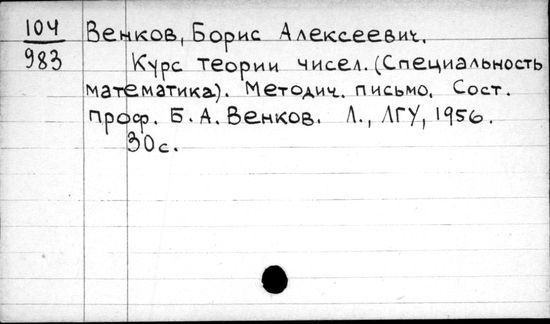 104
983
Венков, Борис Алексеевич.
Курс теории чисел. (Специальность
математика). Методич. письмо. Сост.
проф. Б. А. Венков. Л., ЛГУ, 1956.
30с.